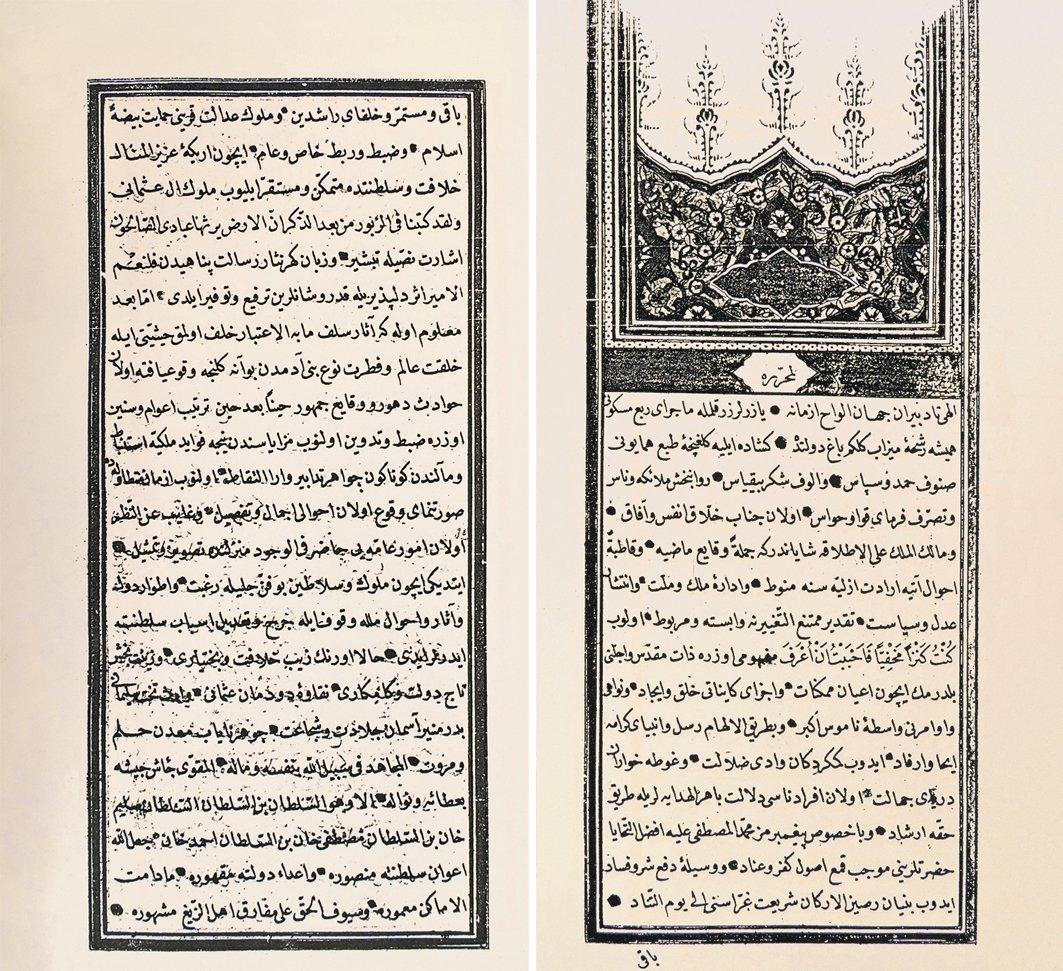 لمحرّره
الهی تا دبیران جهان الواح ازمانه ● یازرلر زر قلمله ماجرای ربع مسکونی
همیشه رشحهٔ میزاب کلکم باغ دولتده ● کشاده ایلیه کلغنچهٔ طبع همایونی
صنوف حمد وسپاس ● والوف شکر بیقیاس ● روانبخش ملائکه وناس
وتصرّف فرمای قوا وحواس ● اولان جناب خلاّق انفس وآفاق ●
ومالك الملك علی الاطلاقه شایاندرکه جملهٔ وقایع ماضیه ● وقاطبهٔ
احوال آتیه ارادت ازلیّه سنه منوط ● وادارهٔ ملك وملّت ● وانتشار
عدل وسیاست ● تقدیر ممتنع التّغییرینه وابسته ومربوط ● اولوب
كُنْتُ كَنْزاً مَخْفِيّاً فَاَحْبَبْتُ اَنْ اُعْرَفَ مفهومی اوزره ذات مقدّس واجبی
بلدرمك ایچون اعیان ممکنات ● واجزای کایناتی خلق وایجاد ● ونواهی
واوامرنی واسطهٔ ناموس اکبر ● وبطریق الالهام رسل وانبیای کرامه
ایحا وارفاد ● ایدوب ککردکان وادی ضلالت ● وغوطه خواران
دریای جهالت ● اولان افراد ناسی دلالت باهر الهدایه لریله طریق
حقه ارشاد ● وباخصوص پیغمبرمز محمّد المصطفی علیه افضل التّحایا
حضرتلرینی موجب قمع اصول کفر وعناد ● ووسیلهٔ دفع شر وفساد
ایدوب بنیان رصین الارکان شریعت غرّاسنی الی یوم التّناد ●
باقی
باقی ومستمرّ وخلفای راشدین ● وملوك عدالت قرینی حمایت بیضهٔ
اسلام ● وضبط وربط خاص وعام ● ایچون اریکهٔ عزیز المنال
خلافت وسلطنتده متمکّن ومستقرّ ایلیوب ملوك ال عثمانی
ولقد كتبنا فی الزّبور من بعد الذّکر انّ الارض یرثها عبادی الصّالحون
اشارت نصّیله تبشیر ● وزبان کهرنثار رسالت پناهیدن فلنعم
الامیر اثر دلپذیریله قدر وشانلرین ترفیع وتوفیر ایلدی ● امّا بعد
معلوم اوله که آثار سلف ما به الاعتبار خلف اولمق حیثیّتی ایله
خلقت عالم وفطرت نوع بنی آدمدن بو آنه کلنجه وقوع یافته اولان
حوادث دهور ووقایع جمهور حیناً بعد حین ترتیب اعوام وسنین
اوزره ضبط وتدوین اولنوب مزایاسندن نیجه فواید ملکیّه استنباط
ومآلندن کوناکون جواهر تدابیر وارا التقاط ● اولنوب ازمنهٔ
صورتنمای وقوع اولان احوالی اجمال وتفصیل ● وغایب عن النّظر
اولان امور عامّه یی حاضر فی الوجود منزلنده تصویر وتمثیل ●
ایتدیکی ایچون ملوك وسلاطین بو فنّ جلیله رغبت ● واطوار دول
وآثار واحوال ملله وقوف ایله جرح وتعدیل اسباب سلطنته
ایده کلمشلردر ● حالا اورنك زیب خلافت وبختیاری ●
تاج دولت وکامکاری ● نقاوهٔ دودمان عثمانی ● وارث تخت سلیمانی
بدر منیر آسمان جلادت وشجاعت ● جوهر نایاب معدن حلم
ومروت ● المجاهد فی سبیل الله بنفسه وماله ● المقوّی جاش جیشه
بعطائه ونواله ● الا وهو السّلطان بن السّلطان السّلطان سلیم
خان بن السّلطان مصطفی خان بن السّلطان احمد خان ● جعل الله
اعوان سلطنته منصوره ● واعداء دولته مقهوره ● مادامت
الاماکن معموره ● وسیوف الحقّ علی مفارق اهل الزّیغ مشهوره ●